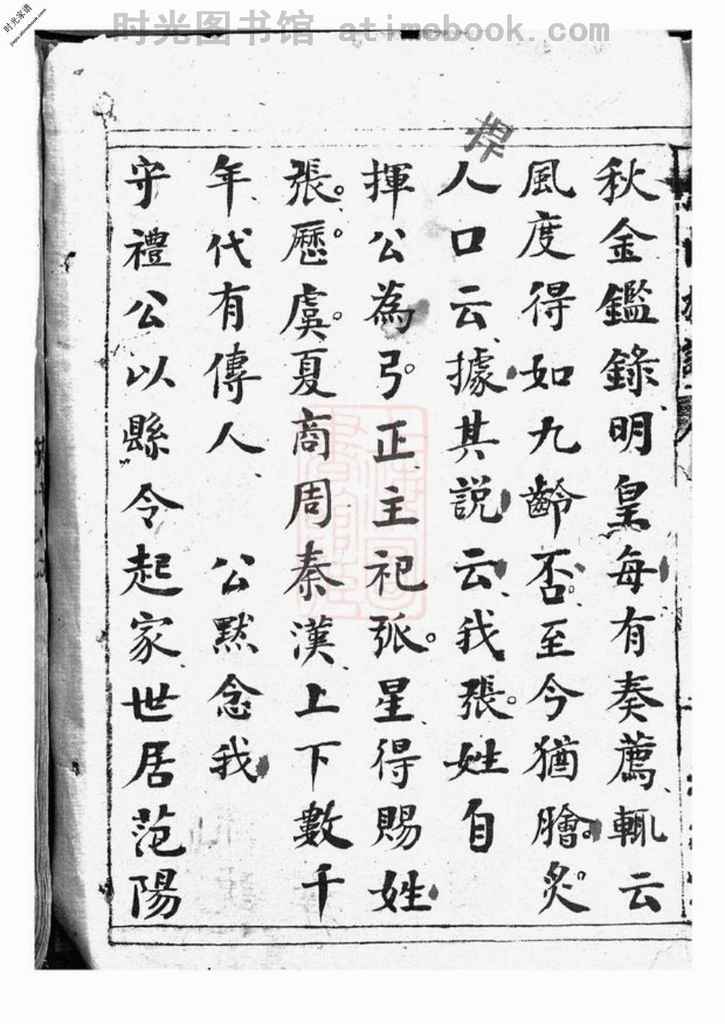 时光图书馆 atimebook.com
时光家谱
秋金鑑錄明皇每有奏薦輒云
風度得如九齡否至今猶膾炙
人口云據其說云我張姓自
揮公為弓正主祀弧星得賜姓
張歷虞夏商周秦漢上下數千
年代有傳人 公默念我
守禮公以縣令起家世居范陽